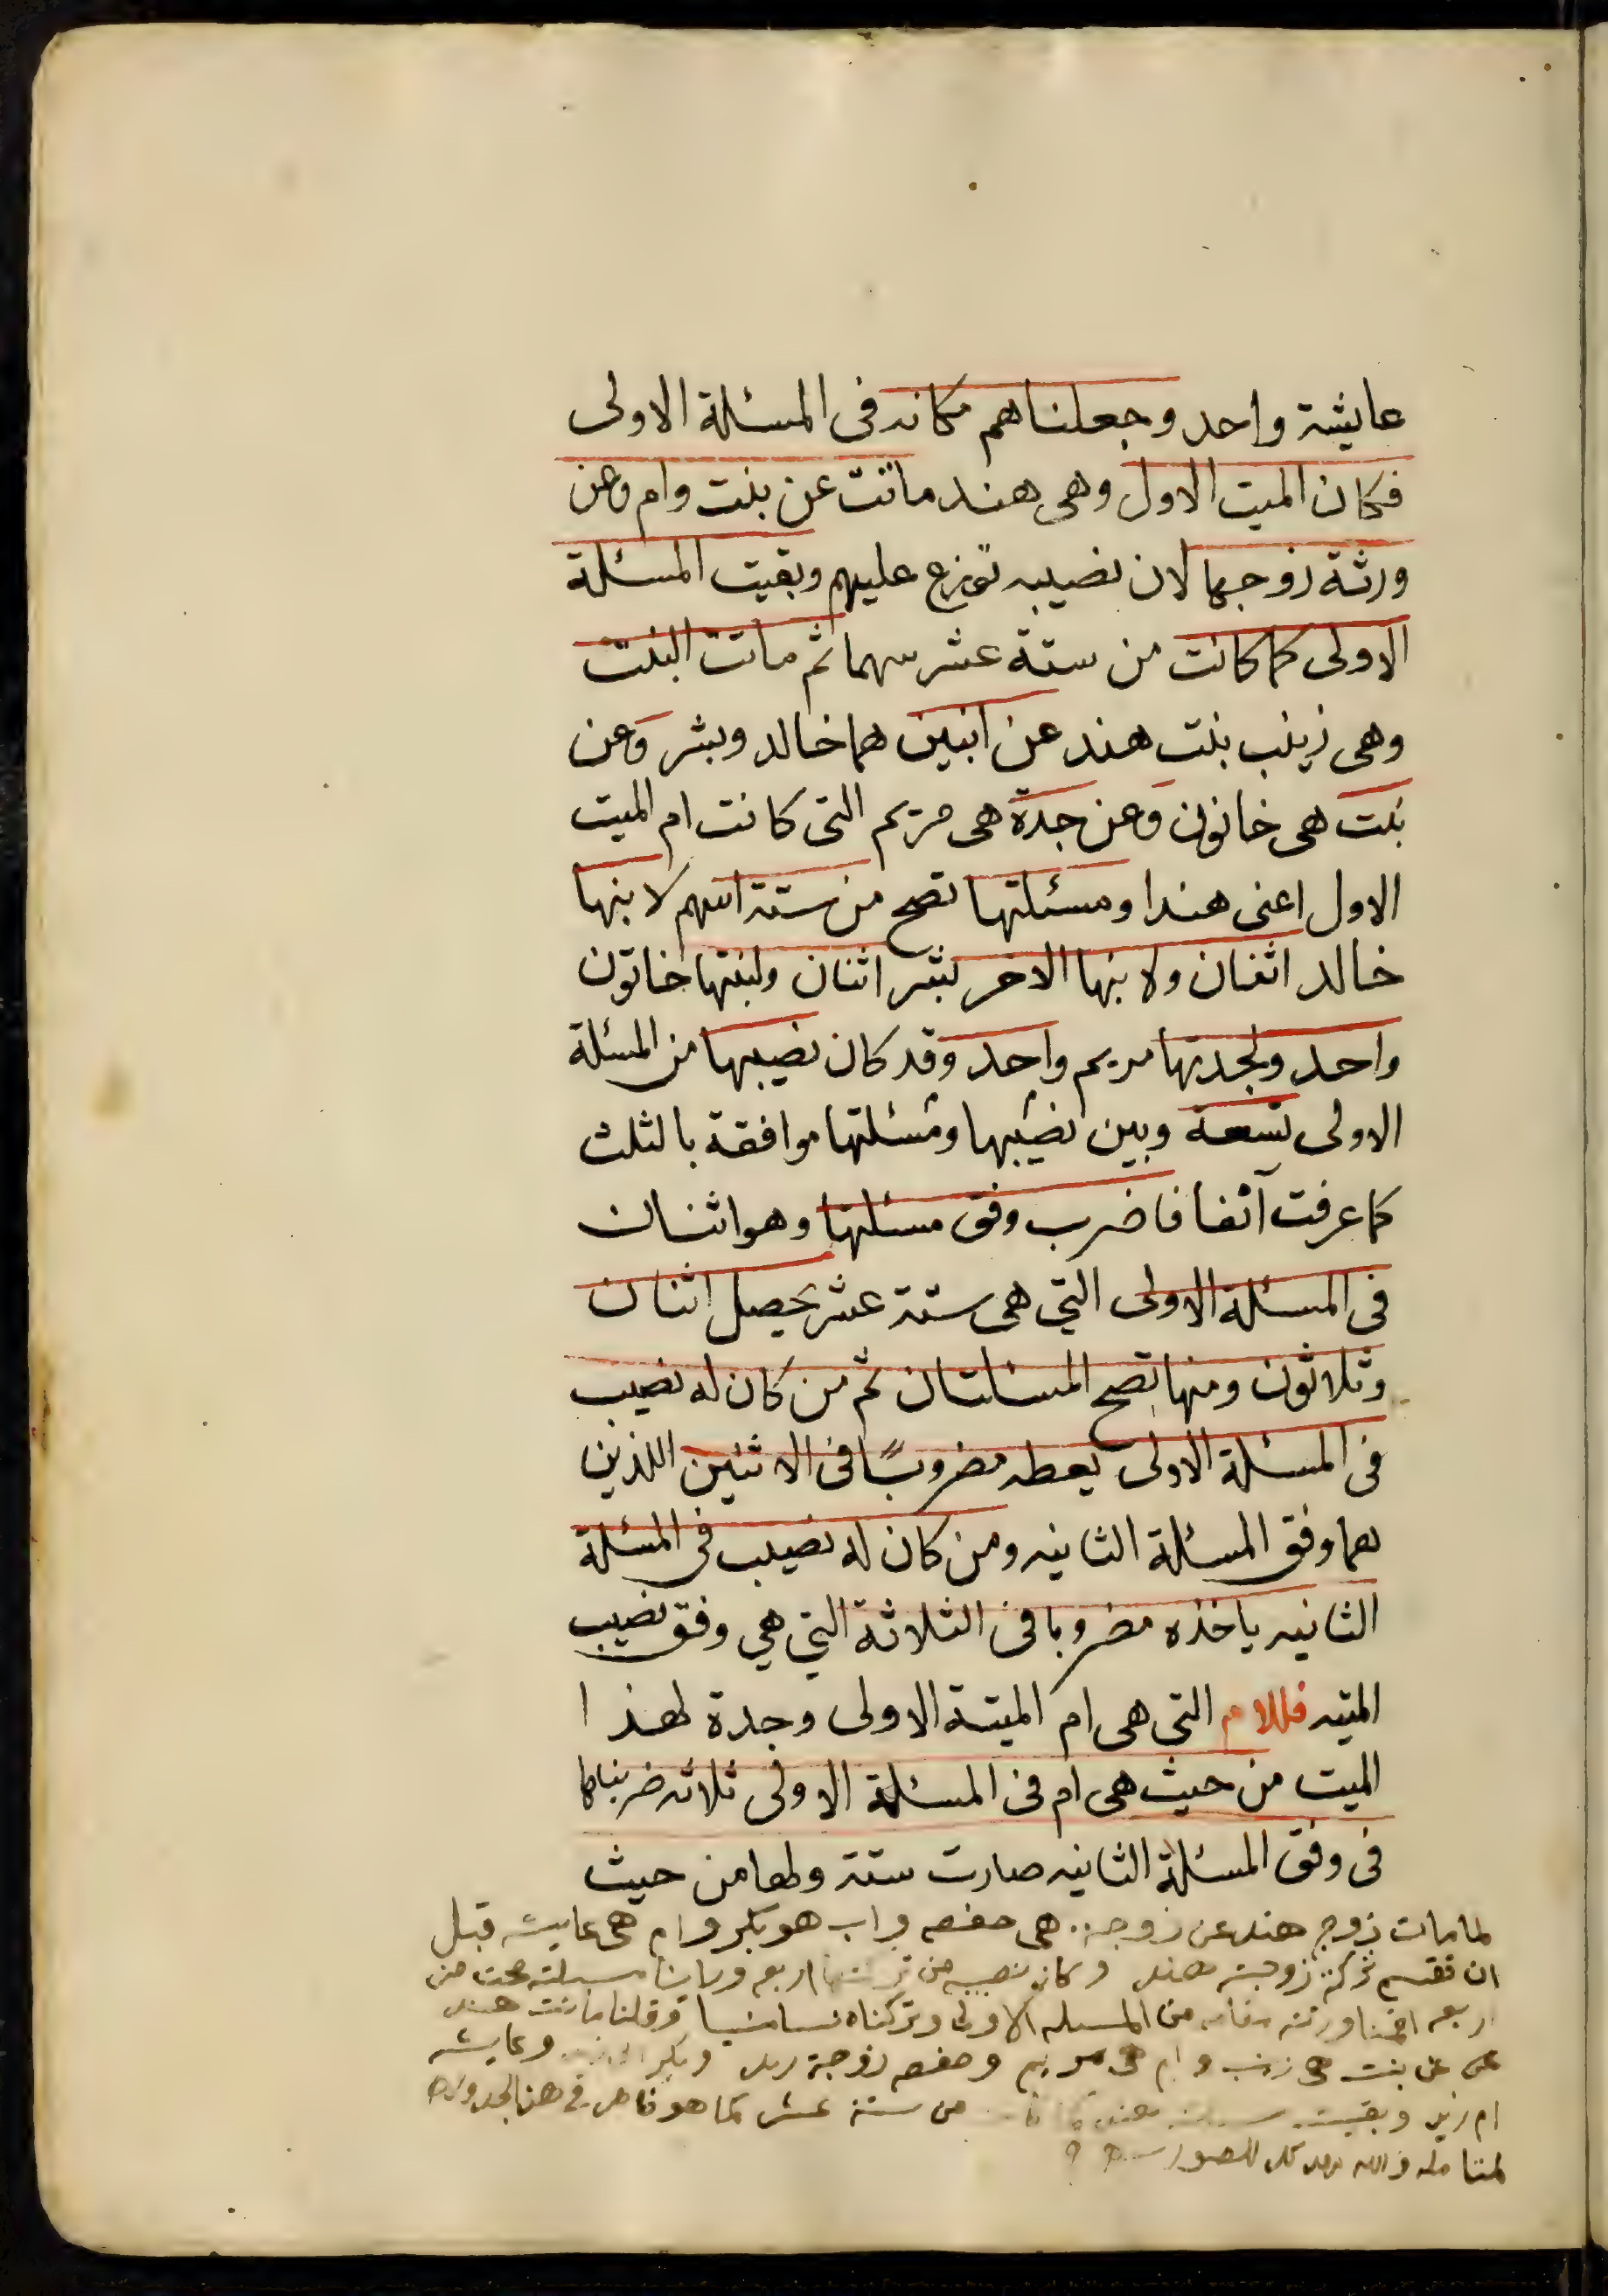 عايشة واحد وجعلناهم مكانه فى المسئلة الاولى
فكان الميت الاول وهى هند ماتت عن بنت وام وعن
ورثة زوجها لان نصيبه توزع عليهم وبقيت المسئلة
الاولى كما كانت من ستة عشر سهما ثم ماتت البنت
وهى زينب بنت هند عن ابنين هما خالد وبشر وعن
بنت هى خاتون وعن جدة هى مريم التى كانت ام الميت
الاول اعنى هندا ومسئلتها تصح من ستة اسهم لابنها
خالد اثنان ولابنها الاخر بشر اثنان ولبنتها خاتون
واحد ولجدتها مريم واحد وقد كان نصيبها من المسئلة
الاولى تسعة وبين نصيبها ومسئلتها موافقة بالثلث
كما عرفت آنفا فاضرب وفق مسئلتها وهو اثنان
فى المسئلة الاولى التى هى ستة عشر يحصل اثنان
وثلاثون ومنها تصح المسئلتان ثم من كان له نصيب
فى المسئلة الاولى يعطه مضروبًا فى الاثنين اللذين
هما وفق المسئلة الثانيه ومن كان له نصيب فى المسئلة
الثانيه ياخذه مضروبا فى الثلاثة التى هي وفق نصيب
الميته فللام التى هى ام الميتة الاولى وجدة لهذا
الميت من حيث هى ام فى المسئلة الاولى ثلاثه ضربناها
فى وفق المسئلة الثانيه صارت ستة ولها من حيث
لما مات زوج هند عن زوجة هى حفصه واب هو بكر وام هى عايشه قبل
ان تقسم تركة زوجته هند وكان نصيبه من اربعه وراينا مسئلته صحت من
اربعه اقمنا ورثته مقامه من المسئله الاولى وتركناه نسيا منسيا وقلنا ماتت هند
عن بنت هى زينب وام هى مريم وحفصه زوجة زيد وبكر وعايشه
ام زيد وبقيت من ستة عشر كما هو ظاهر فى هذا الجدول